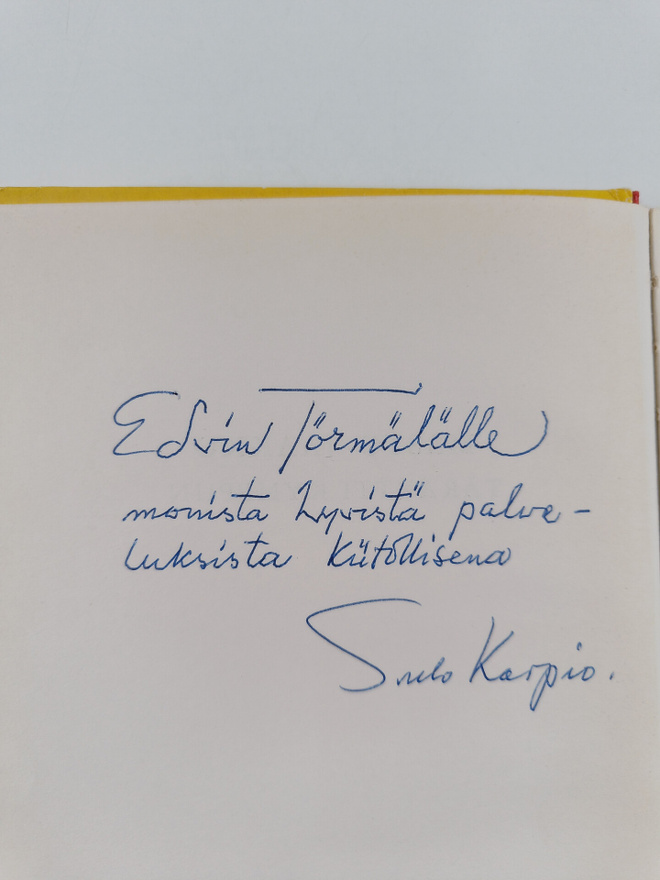 Edvin Törmälälle
monista hyvistä palve-
luksista kiitollisena
Sulo Karpio.